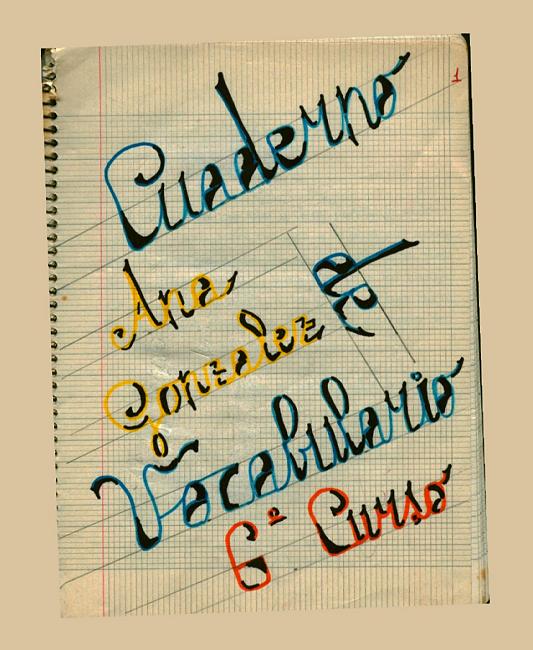 1
Cuaderno
de
Ana
Gonzalez
Vocabulario
6º Curso